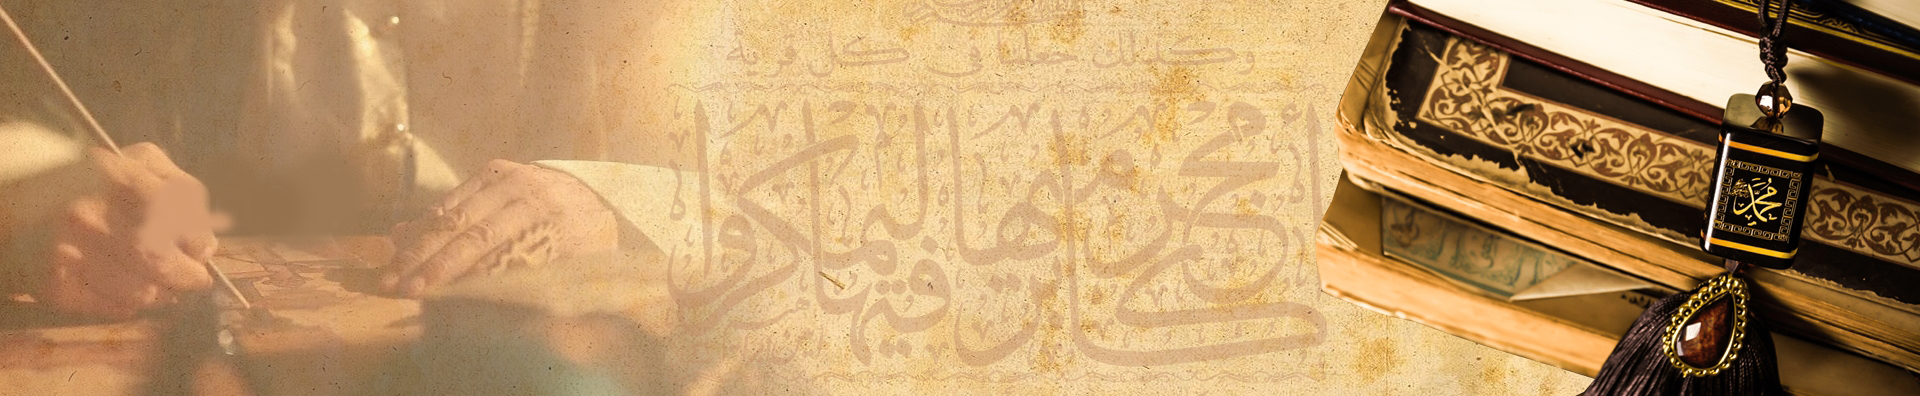 وكذلك جعلنا في كل قرية
أكابر مجرميها ليمكروا فيها
محمد